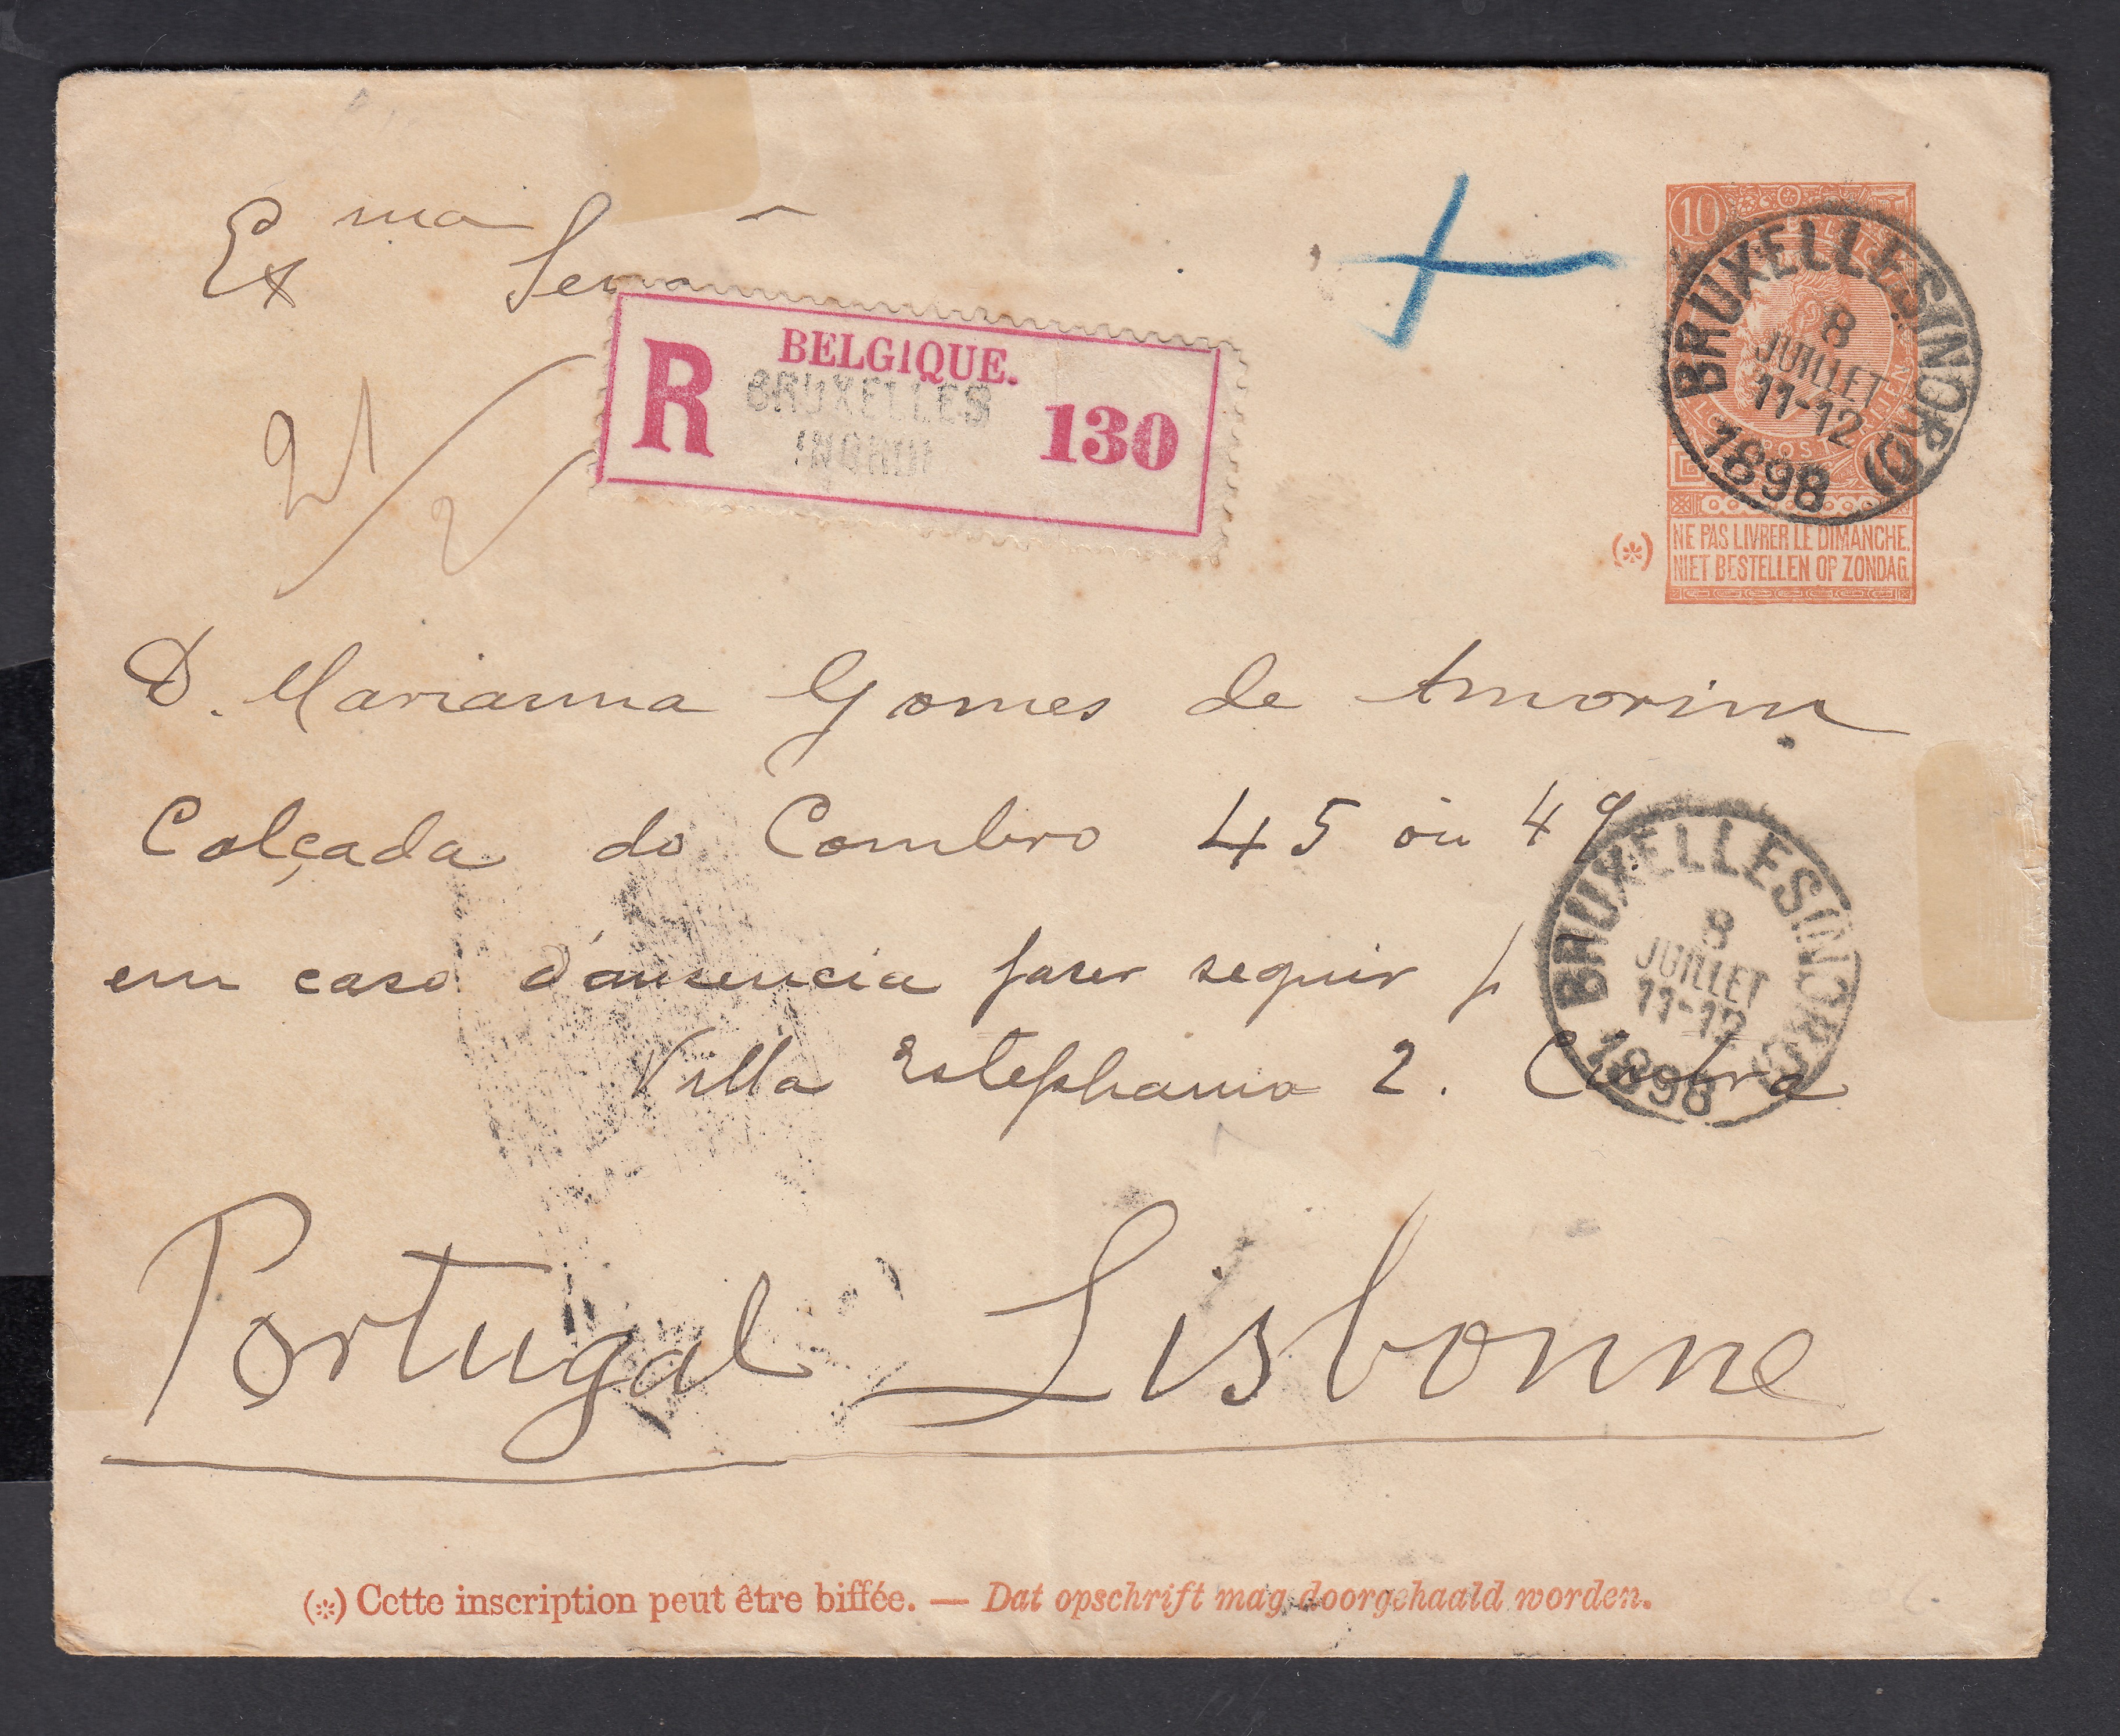 Exma Senra
10
BRUXELLES (NORD)
8
JUILLET
11-12
1898
BELGIQUE.
R
BRUXELLES
(NORD)
130
21/2
(*)
NE PAS LIVRER LE DIMANCHE.
NIET BESTELLEN OP ZONDAG.
D. Marianna Gomes de Amorim
Calçada do Combro 45 ou 49
em caso d'ausencia faser seguir p
Villa Estephania 2. Cintra
BRUXELLES (NORD)
8
JUILLET
11-12
1898
Portugal Lisbonne
(*) Cette inscription peut être biffée. — Dat opschrift mag doorgehaald worden.